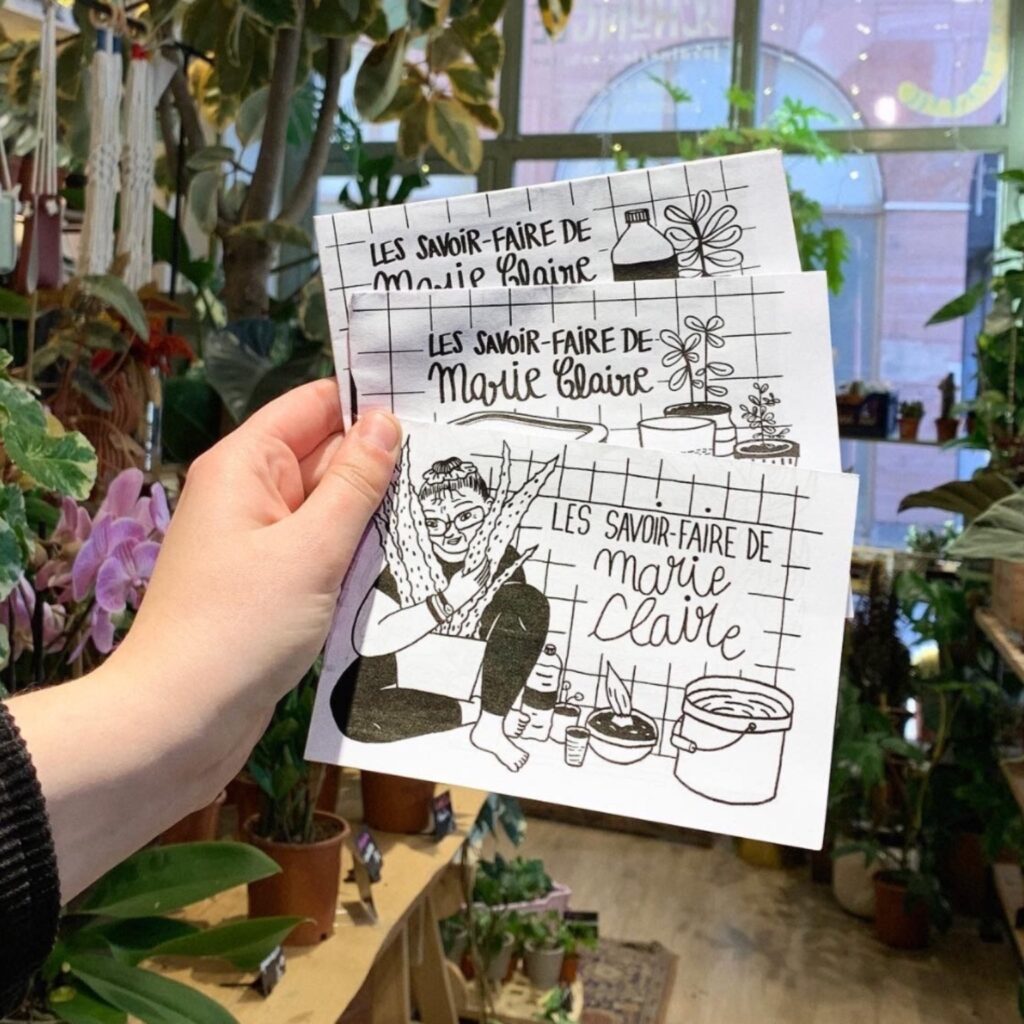 LES SAVOIR-FAIRE DE
Marie Claire
LES SAVOIR-FAIRE DE
Marie Claire
LES SAVOIR-FAIRE DE
marie
Claire